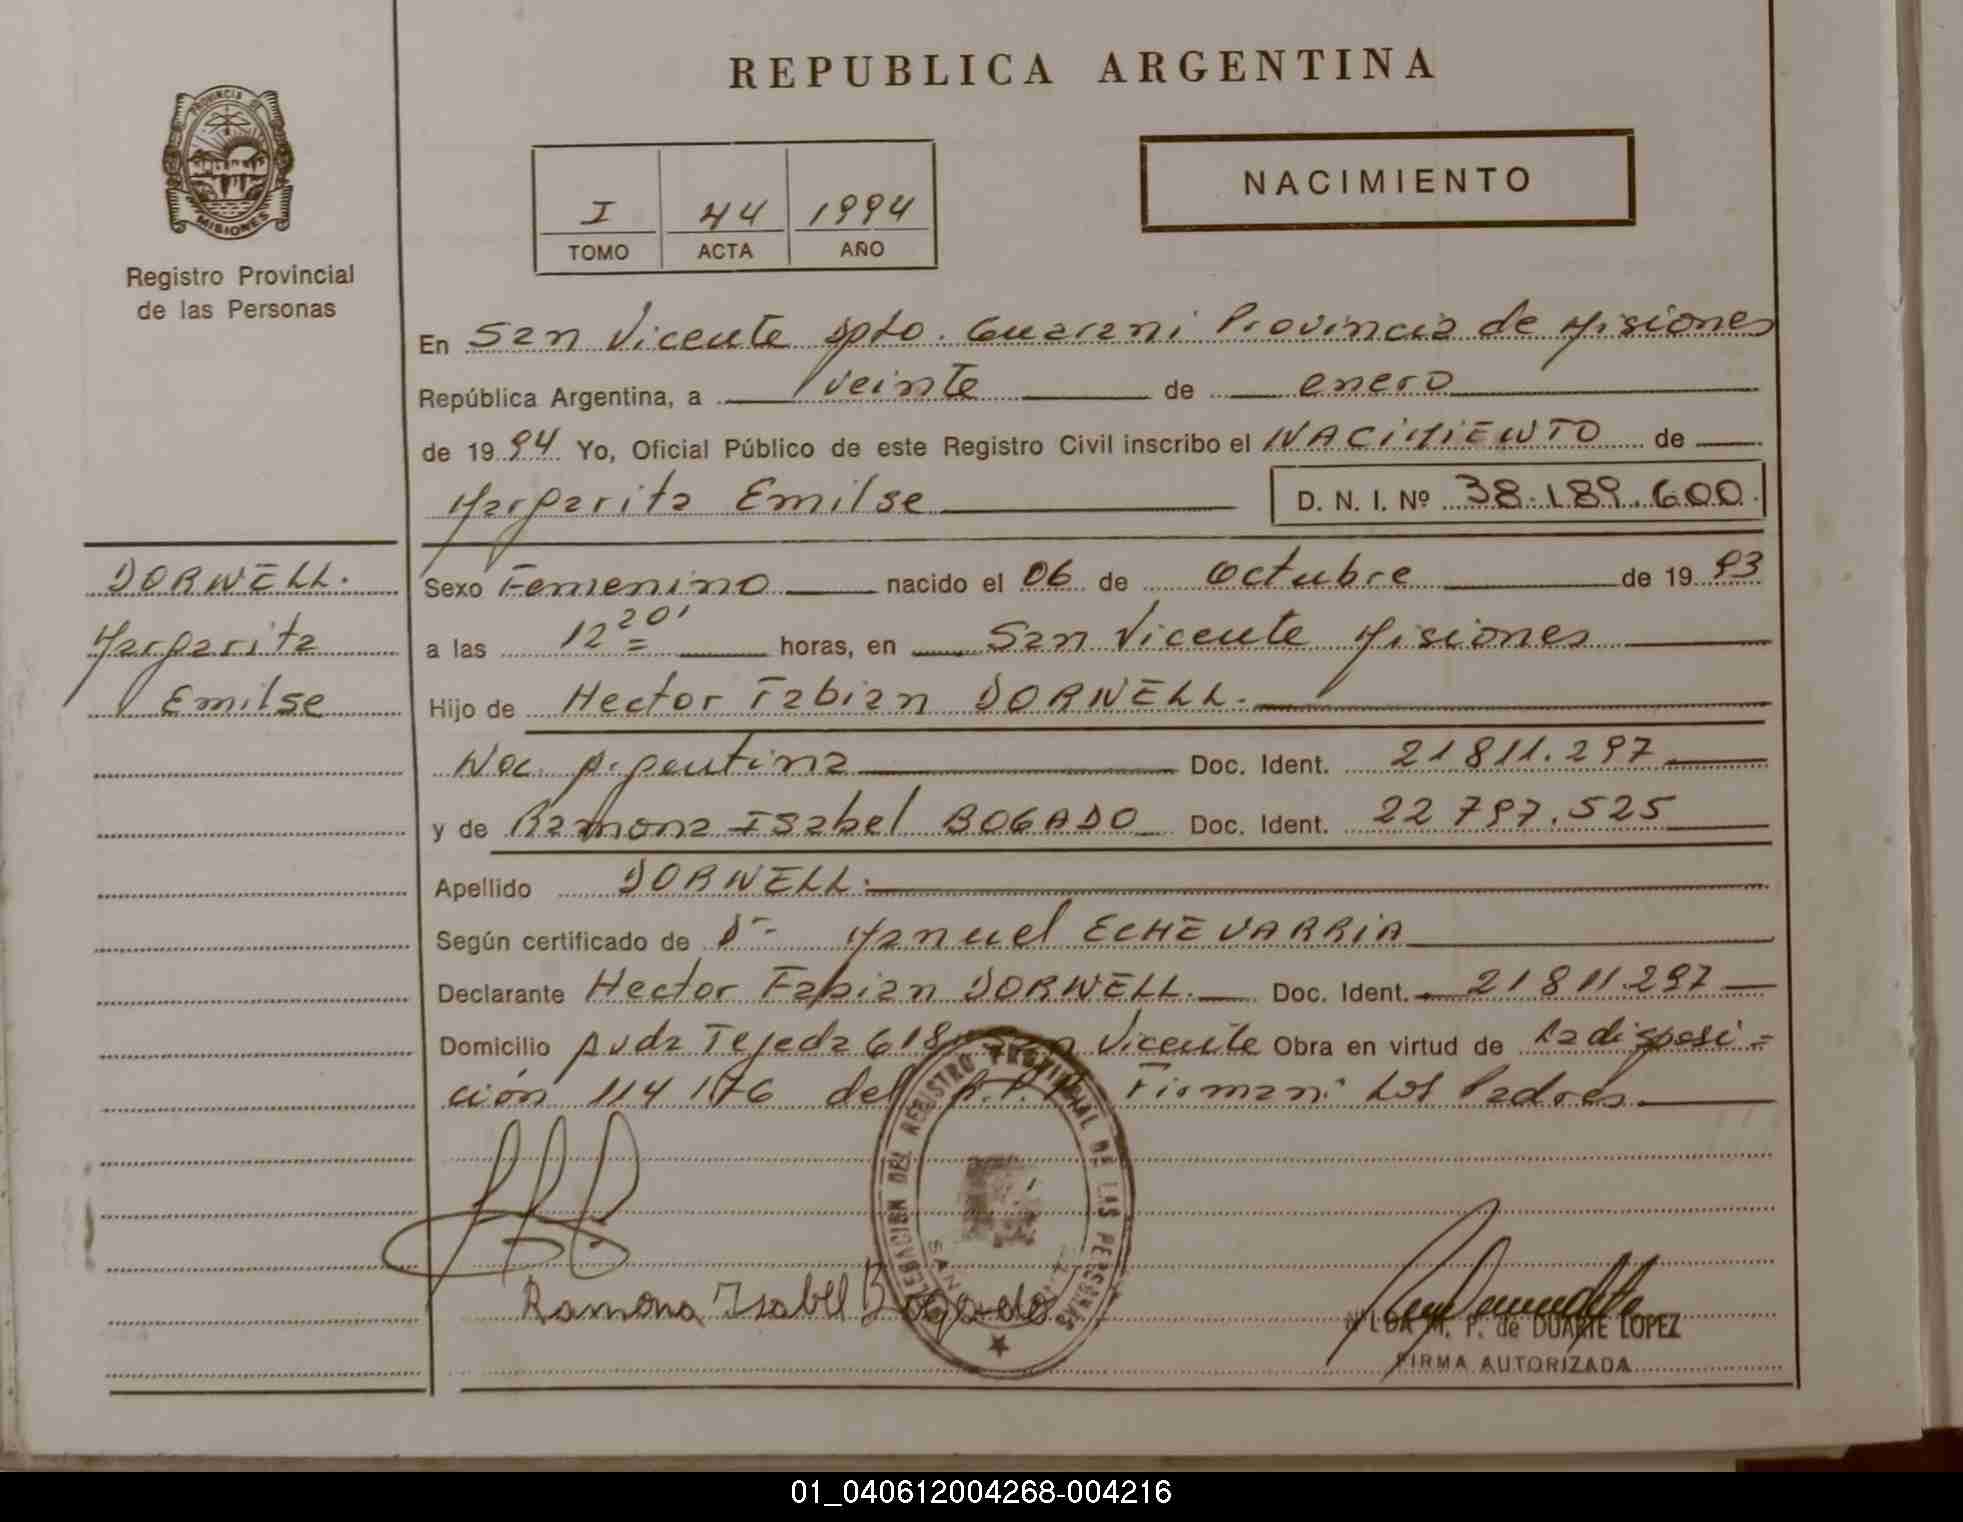 REPUBLICA ARGENTINA
PROVINCIA DE
MISIONES
Registro Provincial
de las Personas
NACIMIENTO
I 44 1994
TOMO ACTA AÑO
En San Vicente Dpto. Guarani Provincia de Misiones
República Argentina, a veinte de enero
de 1994 Yo, Oficial Público de este Registro Civil inscribo el NACIMIENTO de
Margarita Emilse D. N. I. Nº 38.189.600.
DORNELL.
Margarita
Emilse
Sexo Femenino nacido el 06 de Octubre de 1993
a las 12 20' horas, en San Vicente Misiones
Hijo de Hector Fabian DORNELL.
Nac. Argentina Doc. Ident. 21811.297
y de Ramona Isabel BOGADO Doc. Ident. 22797.525
Apellido DORNELL.
Según certificado de Dr Manuel ECHEVARRIA
Declarante Hector Fabian DORNELL. Doc. Ident. 21811297
Domicilio Avda Tejeda 618 San Vicente Obra en virtud de La disposi=
ción 114/76 del R.P.P. Firman: Los Padres
DELEGACION DEL REGISTRO PROVINCIAL DE LAS PERSONAS
SAN
Ramona Isabel Bogado
NILDA M. P. de DUARTE LOPEZ
FIRMA AUTORIZADA
01_040612004268-004216